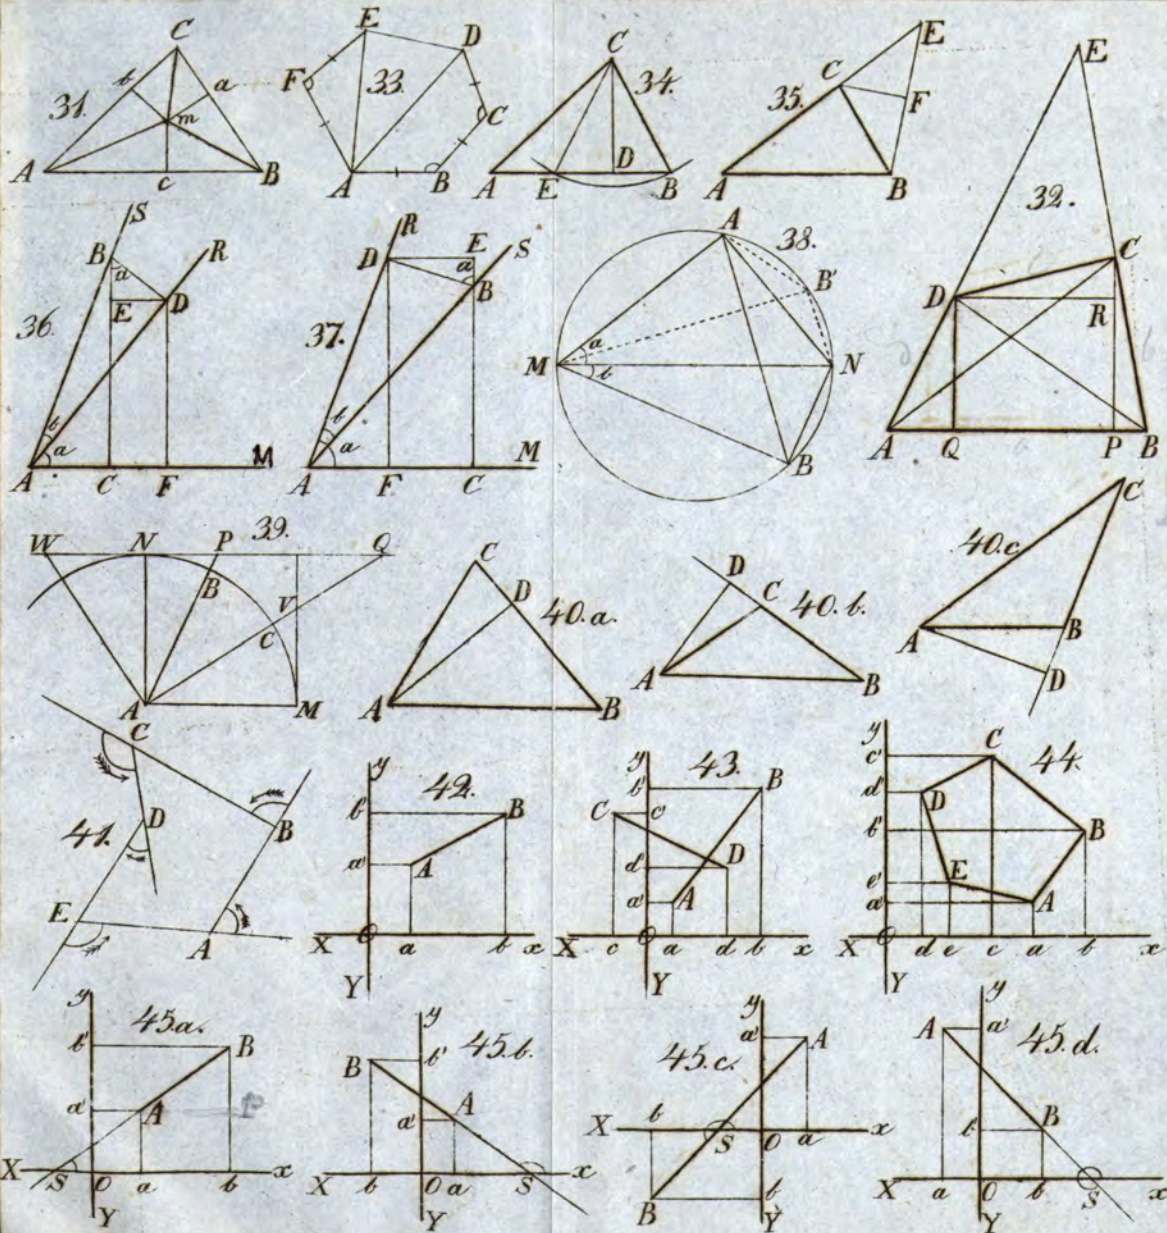 31.
C
b
a
m
A
c
B
33.
E
D
F
C
A
B
34.
C
A
E
D
B
35.
E
C
F
A
B
32.
E
D
C
R
A
Q
P
B
36.
S
B
R
a
E
D
b
a
A
C
F
M
37.
R
D
E
S
a
B
b
a
A
F
C
M
38.
A
B'
M
a
b
N
B
39.
W
N
P
Q
B
V
C
A
M
40.a.
C
D
A
B
40.b.
D
C
A
B
40.c.
C
A
B
D
41.
C
B
D
E
A
42.
y
b'
B
a'
A
X
O
a
b
x
Y
43.
y
b'
B
C
c'
d'
D
a'
A
X
c
O
a
d
b
x
Y
44.
y
c'
C
d'
D
b'
B
e'
E
a'
A
O
d
e
c
a
b
x
Y
45.a.
y
b'
B
a'
A
X
S
O
a
b
x
Y
45.b.
y
B
b'
a'
A
X
b
O
a
S
x
Y
45.c.
y
a'
A
X
b
S
O
a
x
B
b'
Y
45.d.
y
A
a'
b'
B
X
a
O
b
S
x
Y